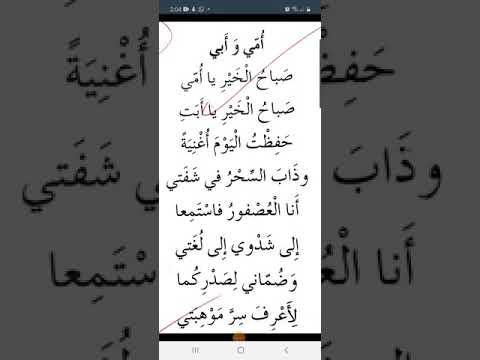 2:04
أُمّي وَ أَبي
صَباحُ الْخَيْرِ يا أُمّي
صَباحُ الْخَيْرِ يا أَبَتِ
حَفِظْتُ الْيَوْمَ أُغْنِيَةً
وذَابَ السِّحْرُ في شَفَتي
أَنا الْعُصْفورُ فاسْتَمِعا
إلى شَدْوي إلى لُغَتي
وَضُمّاني لِصَدْرِكُما
لِأَعْرِفَ سِرَّ مَوْهِبَتي